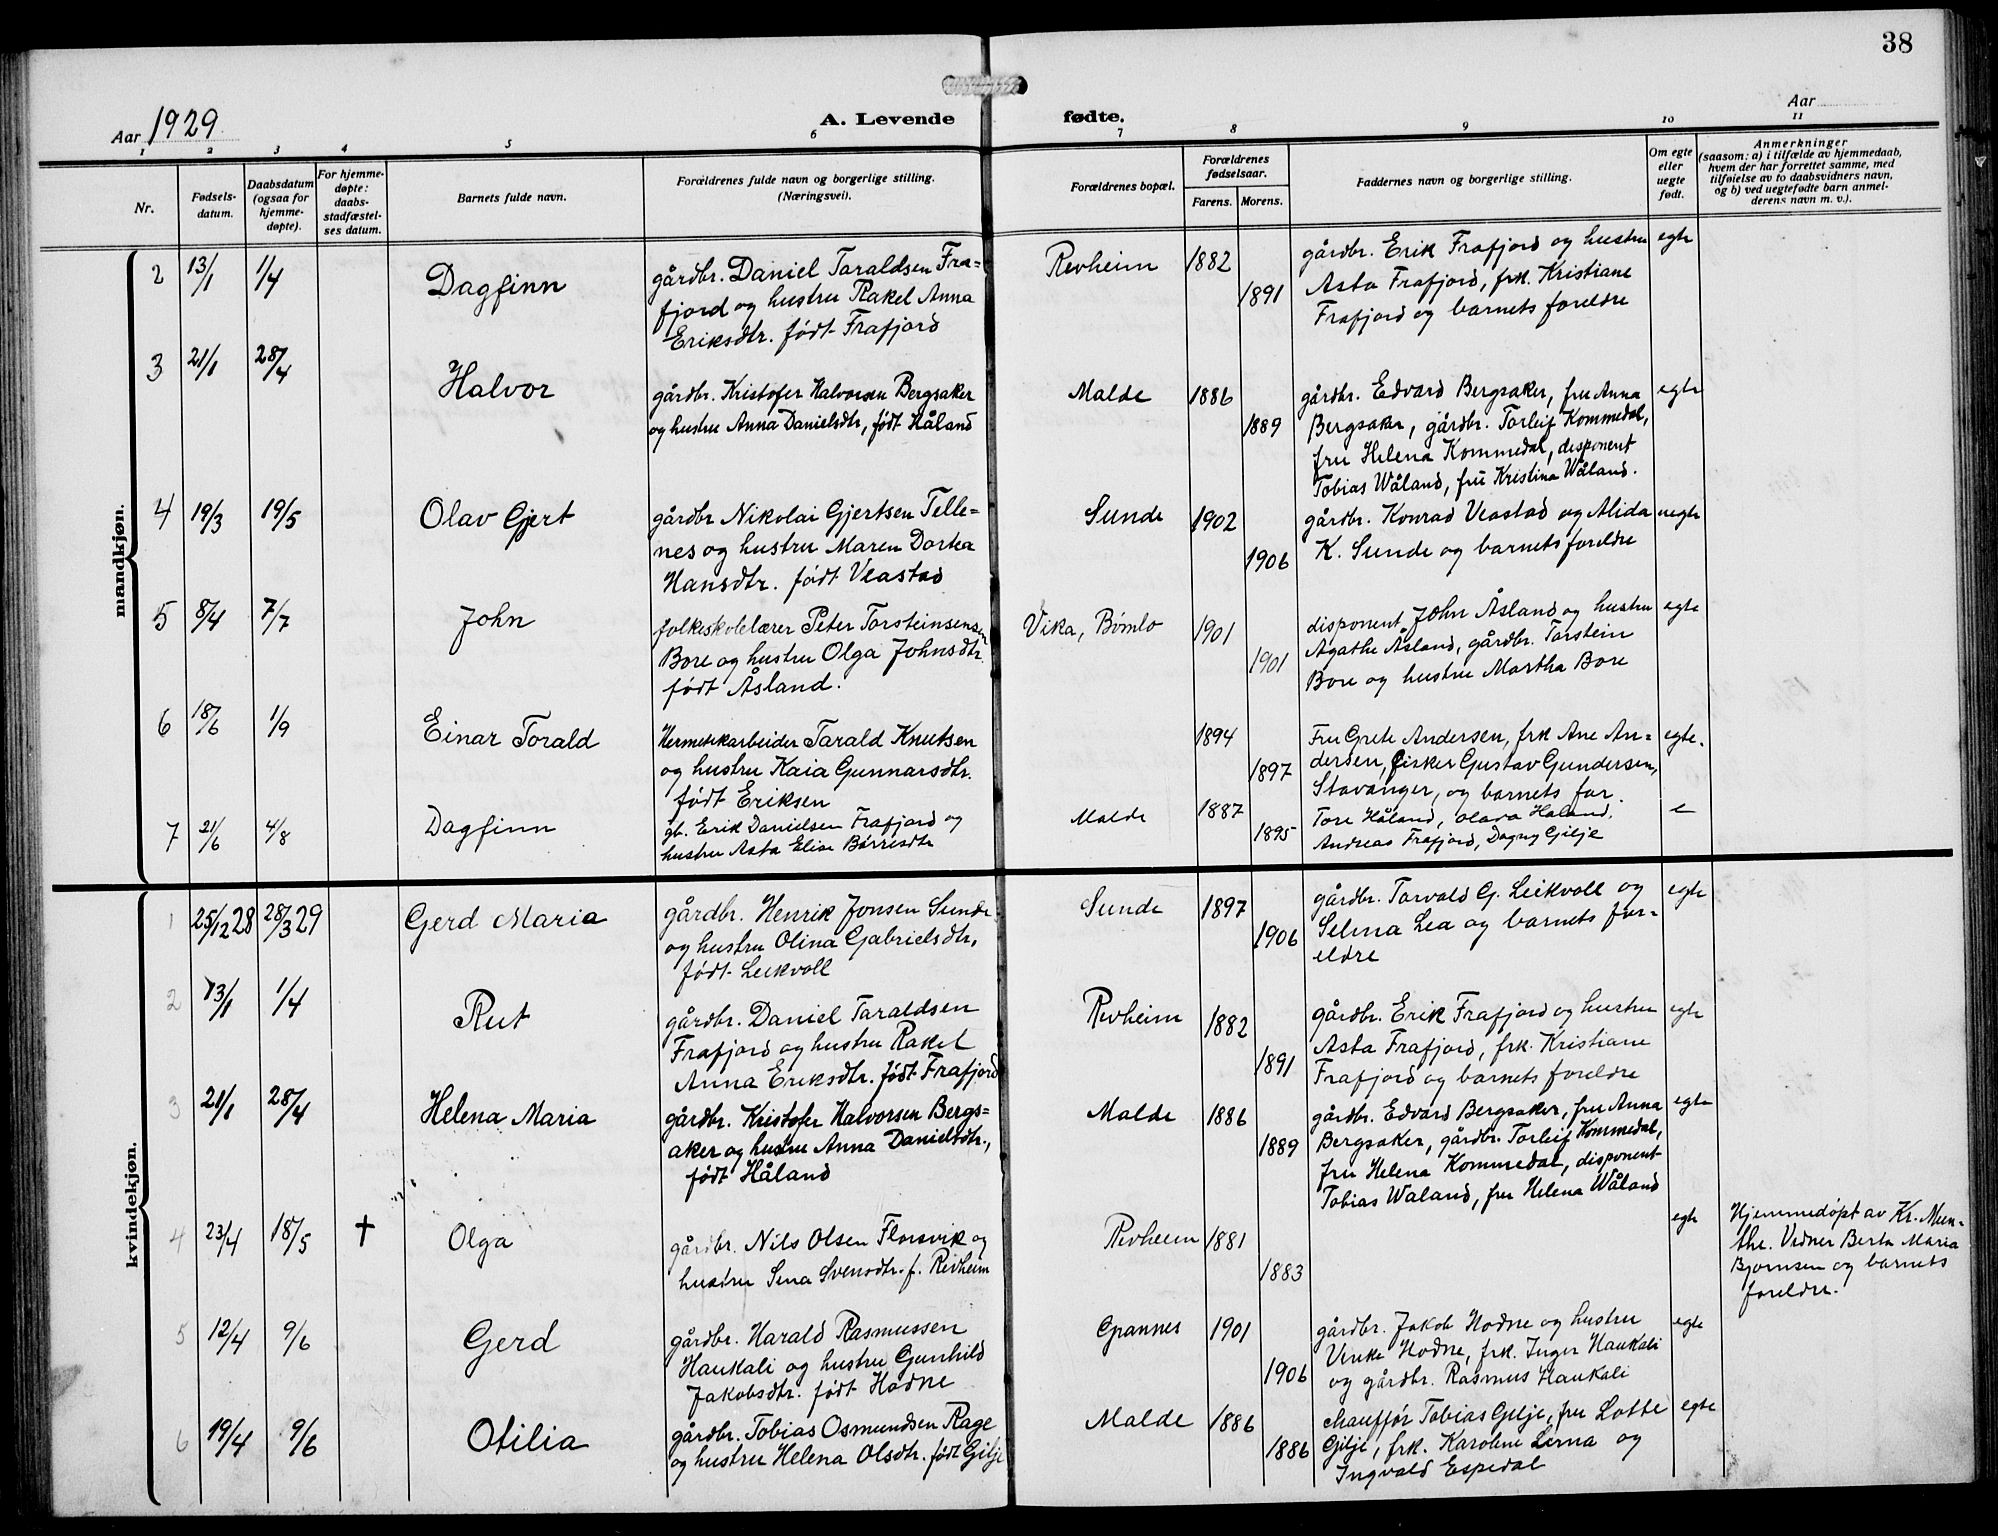 38
Aar 1929
A. Levende fødte.
Aar
1 2 3 4 5 6 7 8 9 10 11
Nr.
Fødsels-
datum.
Daabsdatum
(ogsaa for
hjemme-
døpte).
For hjemme-
døpte:
daabs-
stadfæstel-
ses datum.
Barnets fulde navn.
Forældrenes fulde navn og borgerlige stilling.
(Næringsvei).
Forældrenes bopæl.
Forældrenes
fødselsaar.
Farens. Morens.
Faddernes navn og borgerlige stilling.
Om egte
eller
uegte
født.
Anmerkninger
(saasom: a) i tilfælde av hjemmedaab,
hvem der har forrettet samme, med
tilføielse av to daabsvidners navn,
og b) ved uegtefødte barn anmel-
derens navn m. v.).
mandkjøn.
2 13/1 1/4 Dagfinn
gårdbr. Daniel Taraldsen Fra=
fjord og hustru Rakel Anna
Eriksdtr. født Frafjord
Revheim 1882 1891
gårdbr. Erik Frafjord og hustru
Asta Frafjord, frk. Kristiane
Frafjord og barnets foreldre
egte
3 21/1 28/4 Halvor
gårdbr. Kristofer Halvorsen Bergsaker
og hustru Anna Danielsdtr, født Håland
Malde 1886 1889
gårdbr. Edvard Bergsaker, fru Anna
Bergsaker, gårdbr. Torleif Kommedal,
fru Helena Kommedal, disponent
Tobias Wåland, frü Kristina Wåland.
egte
4 19/3 19/5 Olav Gjert
gårdbr Nikolai Gjertsen Telle=
nes og hustru Maren Dorthea
Hansdtr. født Veastad
Sunde 1902 1906
gårdbr. Konrad Veastad og Alida
K. Sunde og barnets foreldre
uegte
5 8/4 7/7 John
folkeskolelærer Peter Torsteinsensen
Bore og hustru Olga Johnsdtr.
født Åsland.
Vika, Bømlo 1901 1901
disponent John Åsland og hustru
Agathe Åsland, gårdbr. Torstein
Bore og hustru Martha Bore
egte
6 18/6 1/9 Einar Torald
Hermetikarbeider Tarald Knutsen
og hustru Kaia Gunnarsdtr.
født Eriksen
1894 1897
Fru Grete Andersen, frk Ane An=
dersen, fisker Gustav Gundersen,
Stavanger, og barnets far.
egte.
7 21/6 4/8 Dagfinn
gb. Erik Danielsen Frafjord og
hustru Asta Elise Børresdtr
Malde 1887 1895
Tore Håland, Olava Håland,
Andreas Frafjord, Dagny Gilje
e
kvindekjøn.
1 25/12 28 28/3 29 Gerd Maria
gårdbr. Henrik Jonsen Sunde
og hustru Olina Gabrielsdtr,
født Leikvoll
Sunde 1897 1906
gårdbr. Torvald G. Leikvoll og
Selma Lea og barnets for-
eldre
egte
2 13/1 1/4 Rut
gårdbr. Daniel Taraldsen
Frafjord og hustru Rakel
Anna Eriksdtr. født Frafjord
Revheim 1882 1891
gårdbr. Erik Frafjord og hustru
Asta Frafjord, frk. Kristiane
Frafjord og barnets foreldre
egte
3 21/1 28/4 Helena Maria
gårdbr. Kristofer Halvorsen Bergs=
aker og hustru Anna Danielsdtr.,
født Håland
Malde 1886 1889
gårdbr. Edvard Bergsaker, fru Anna
Bergsaker, gårdbr. Torleif Kommedal,
fru Helena Kommedal, disponent
Tobias Waland, fru Helena Wåland
egte
4 23/4 18/5 † Olga
gårdbr. Nils Olsen Florsvik og
hustru Sina Svensdtr. f. Revheim
Revheim 1881 1883
egte
Hjemmedøpt av Kr. Mun-
the. Vidner Berta Maria
Bjørnsen og barnets
foreldre.
5 12/4 9/6 Gerd
gårdbr. Harald Rasmussen
Haukali og hustru Gunhild
Jakobsdtr. født Hodne
Grannes 1901 1906
gårdbr. Jakob Hodne og hustru
Hodne, frk. Inger Haukali
og gårdbr. Rasmus Haukali
egte
6 19/4 9/6 Otilia
gårdbr. Tobias Osmundsen Rage
og hustru Helena Olsdtr. født Gilje
Malde 1886 1886
chauffør Tobias Gilje, fru Lotte
Gilje, frk. Karoline Lerna og
Ingvald Espedal
egte